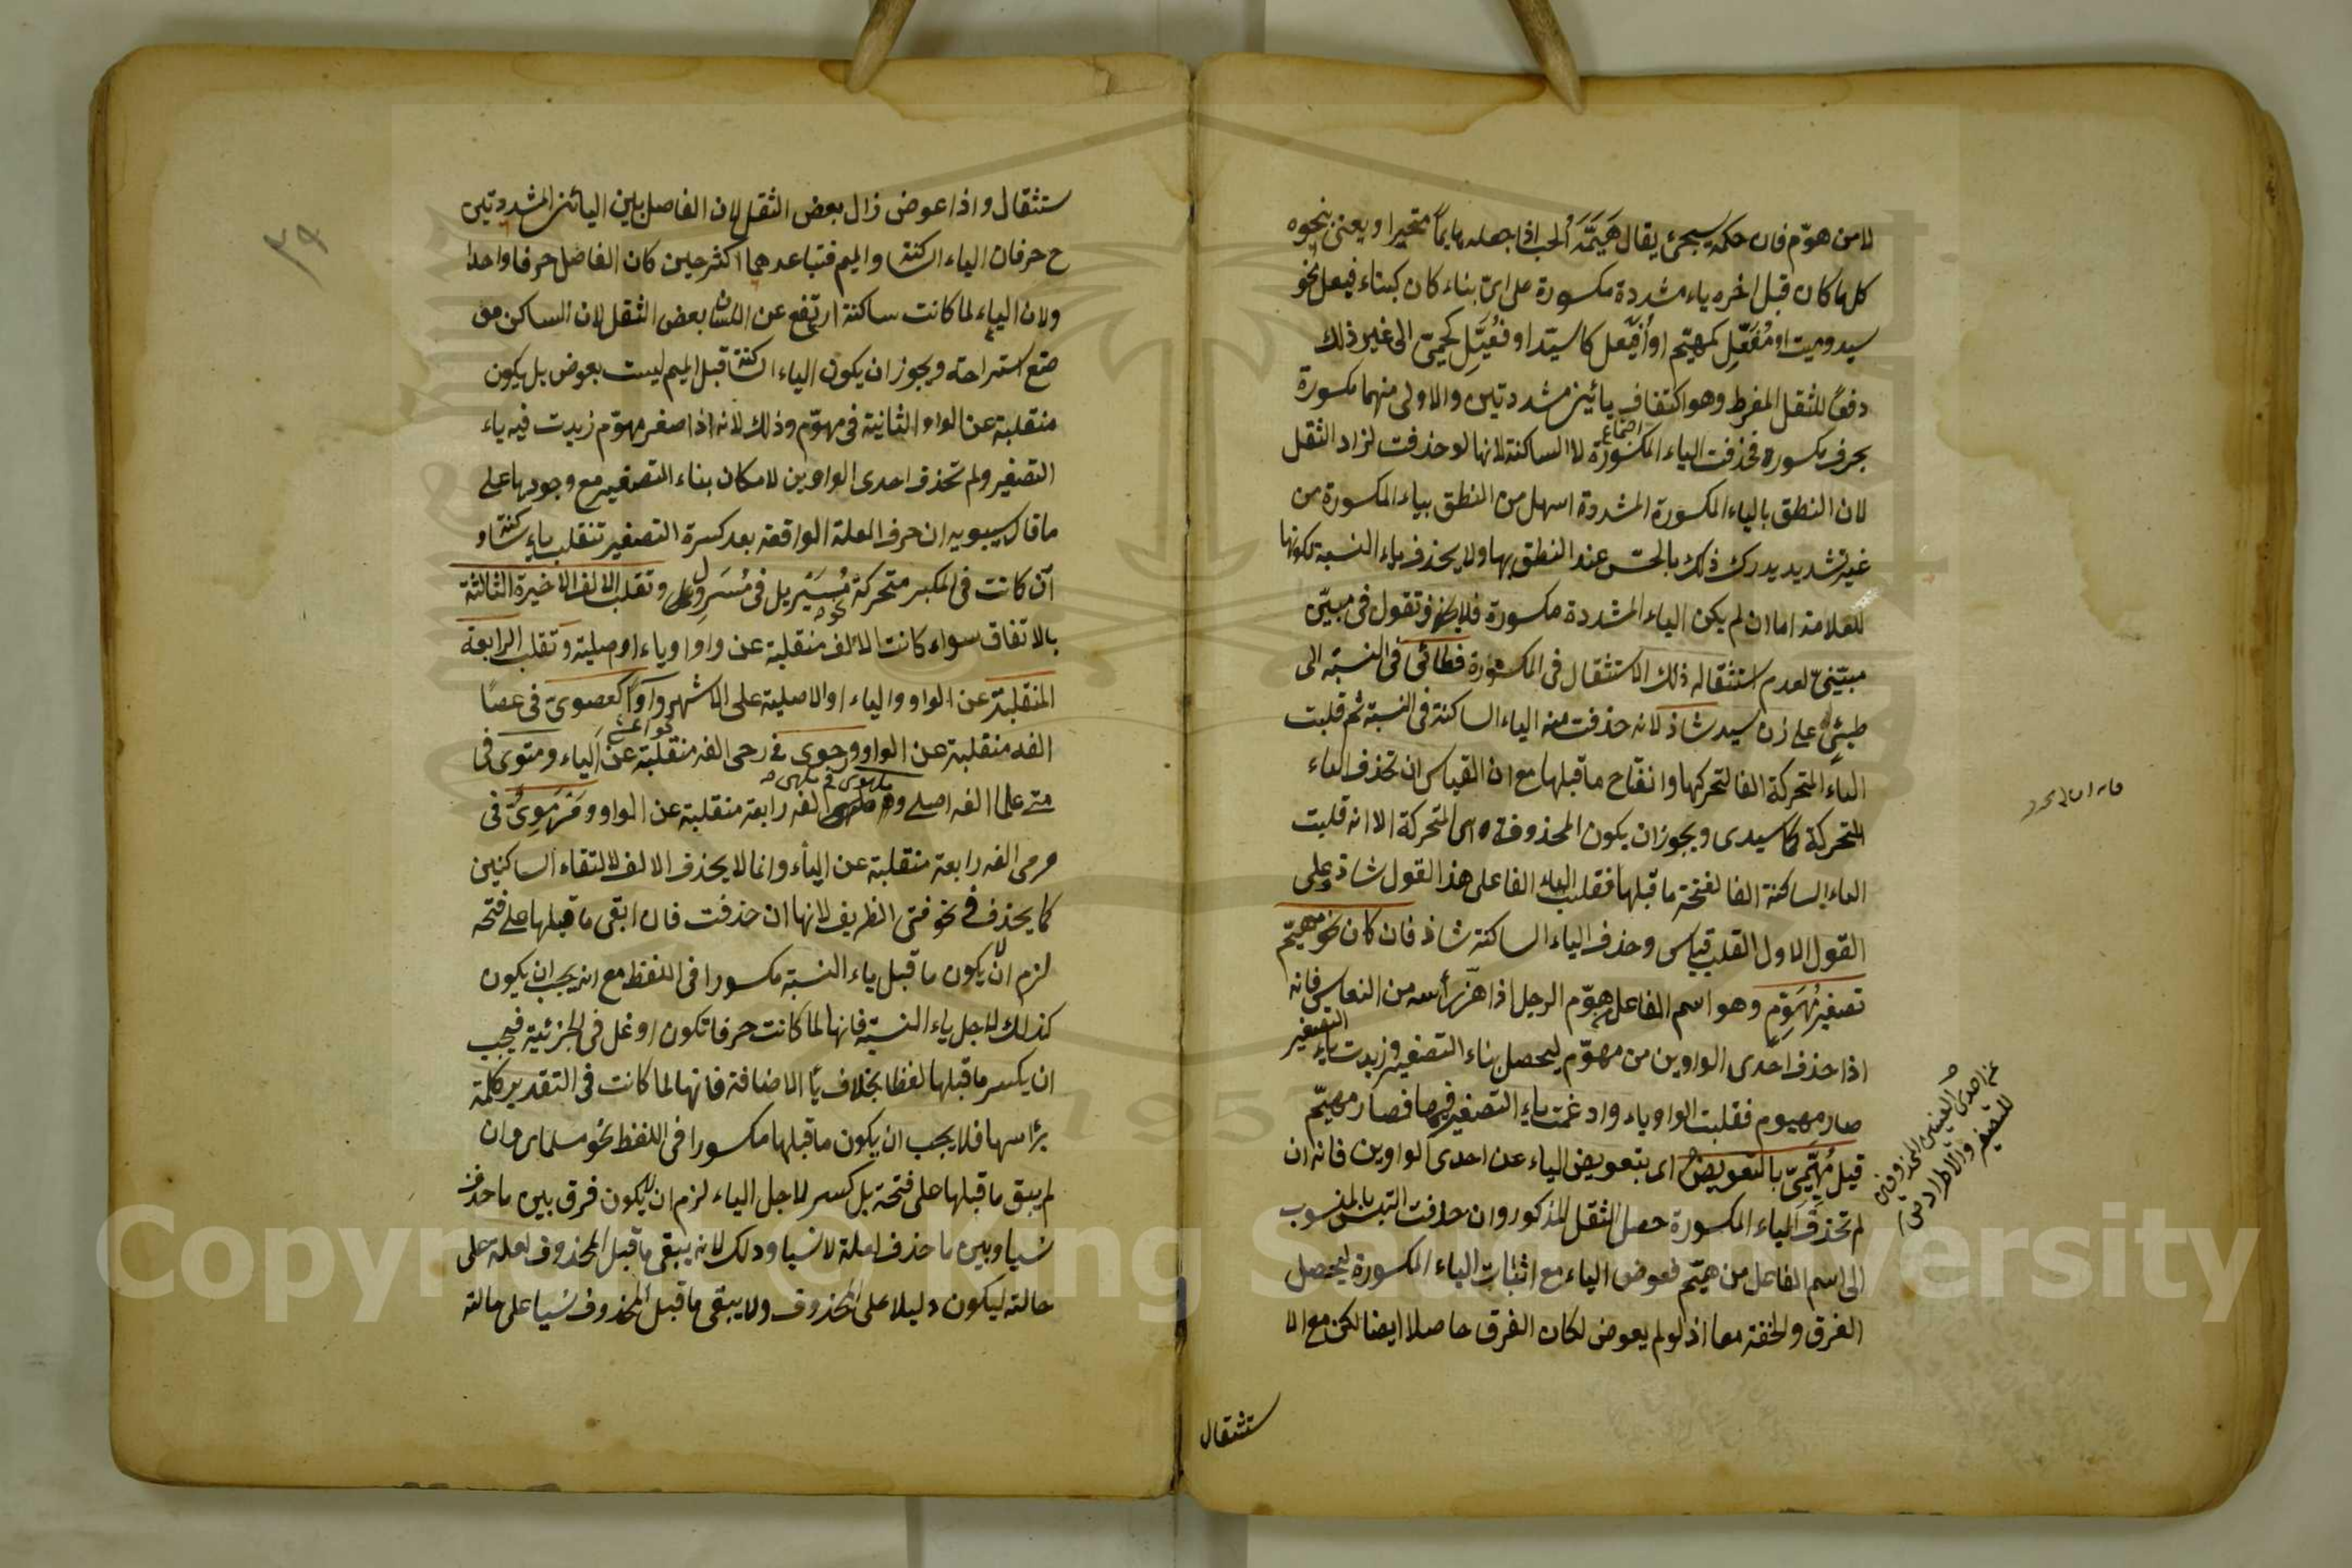 لا من هوّم فان حكمه سيجئ يقال هَيَّمَهُ الحب اذا جعله هايماً متحيرا ويعنى بنحوه
كل ما كان قبل اخره ياء مشددة مكسورة على اىّ بناء كان كبناء فيعل نحو
سيد وميت او مُفَعِّل كمهيّم او أُفَيعل كاسيّد او فُعَيِّل كحميّ الى غير ذلك
دفعاً للثقل المفرط وهو اكتناف يائين مشددتين والاولى منهما مكسورة
بحرف مكسورة فحذفت الياء المكسورة لا الساكنة لانها لو حذفت لزاد الثقل
لان النطق بالياء المكسورة المشددة اسهل من النطق بياء المكسورة من
غير تشديد يدرك ذلك بالحسّ عند النطق بها ولا يحذف ياء النسبة لكونها
للعلامة اما ان لم يكن الياء المشددة مكسورة فلا يحذف وتقول فى مبيّن
مبيّنىّ لعدم استثقاله ذلك الاستثقال فى المكسورة فطائى فى النسبة الى
طيئٍ على زنه سيد شاذ لانه حذفت منه الياء الساكنة فى النسبة ثم قلبت
الياء المتحركة الفا لتحركها وانفتاح ما قبلها مع ان القياس ان تحذف الياء
المتحركة كما سيدى ويجوز ان يكون المحذوفة هى المتحركة الا انه قلبت
الياء الساكنة الفا لفتحة ما قبلها فقلب الياء الفا على هذا القول شاذ وعلى
القول الاول القلب قياس وحذف الياء الساكنة شاذ فان كان نحو مهيّم
تصغير مُهَوِّم وهو اسم الفاعل من هوّم الرجل اذا هزّ رأسه من النعاس فانه
اذا حذف احدى الواوين من مهوّم ليحصل بناء التصغير وزيدت ياء التصغير
صار مهيوم فقلبت الواو ياء وادغمت ياء التصغير فيها فصار مهيّم
قيل مُهَيِّيمىّ بالتعويض اى بتعويض الياء عن احدى الواوين فانه ان
لم تحذف الياء المكسورة حصل الثقل المذكور وان حذفت التبس بالمنسوب
الى اسم الفاعل من هيّم فعوض الياء مع اثبات الياء المكسورة ليحصل
الفرق والخفة معا اذ لو لم يعوض لكان الفرق حاصلا ايضا لكن مع الا
ستثقال
ستثقال واذا عوض زال بعض الثقل لان الفاصل بين اليائين المشددتين
ح حرفان الياء الساكنة والميم فتباعدهما اكثر حين كان الفاصل حرفا واحدا
ولان الياء لما كانت ساكنة ارتفع عن اللسان بعض الثقل لان الساكن مو
ضع استراحة ويجوز ان يكون الياء الساكنة قبل الميم ليست بعوض بل يكون
منقلبة عن الواو الثانية فى مهوّم وذلك لانه اذا صغر مهوّم زيدت فيه ياء
التصغير ولم تحذف احدى الواوين لامكان بناء التصغير مع وجودها على
ما قال سيبويه ان حرف العلة الواقعة بعد كسرة التصغير تنقلب ياء ساكنة و
ان كانت فى المكبر متحركة نحو مُسَيْرِيل فى مُسَرْوِل وتقلب الالف الاخيرة الثالثة
بالاتفاق سواء كانت الالف منقلبة عن واو او ياء او اصلية وتقلب الرابعة
المنقلبة عن الواو والياء او الاصلية على الاشهر واوًا كعصوىّ فى عصًا
الفه منقلبة عن الواو ورحوى فى رحى الفه منقلبة عن الياء ومتوى فى
متى علما الفه اصلى وملهوى فى ملهى الفه رابعة منقلبة عن الواو ومَرْمَوِىّ فى
مرمى الفه رابعة منقلبة عن الياء وانما لا يحذف الالف لالتقاء الساكنين
كما يحذف فى نحو فتى الظريف لانها ان حذفت فان ابقى ما قبلها على فتحه
لزم ان لا يكون ما قبل ياء النسبة مكسورا فى اللفظ مع انه يجب ان يكون
كذلك لاجل ياء النسبة فانها لما كانت حرفا تكون اوغل فى الجزئية فيجب
ان يكسر ما قبلها لفظا بخلاف ياء الاضافة فانها لما كانت فى التقدير كلمة
برأسها فلا يجب ان يكون ما قبلها مكسورا فى اللفظ نحو مسلماى وان
لم يبق ما قبلها على فتحة بل كسر لاجل الياء لزم ان لا يكون فرق بين ما حذف
نسيا وبين ما حذف لعلة لا نسيا وذلك لانه يبقى ما قبل المحذوف لعلة على
حالته ليكون دليلا على المحذوف ولا يبقى ما قبل المحذوف نسيا على حالته
Copyright © King Saud University